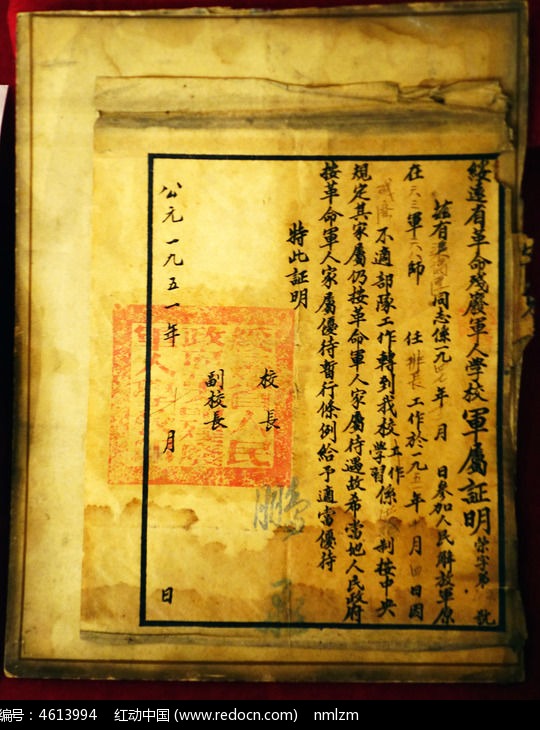 綏遠省革命殘廢軍人學校軍屬証明 榮字第 號
茲有 同志係一九四 年 月 日參加人民解放軍原
在 軍 師 任排長工作於一九五 年 月 日因
不適部隊工作轉到我校學習工作係 制按中央
規定其家屬仍按革命軍人家屬待遇故希當地人民政府
按革命軍人家屬優待暫行條例給予適當優待
特此証明
校長
副校長
公元一九五一年 月 日
编号：4613994 红动中国 (www.redocn.com) nmlzm